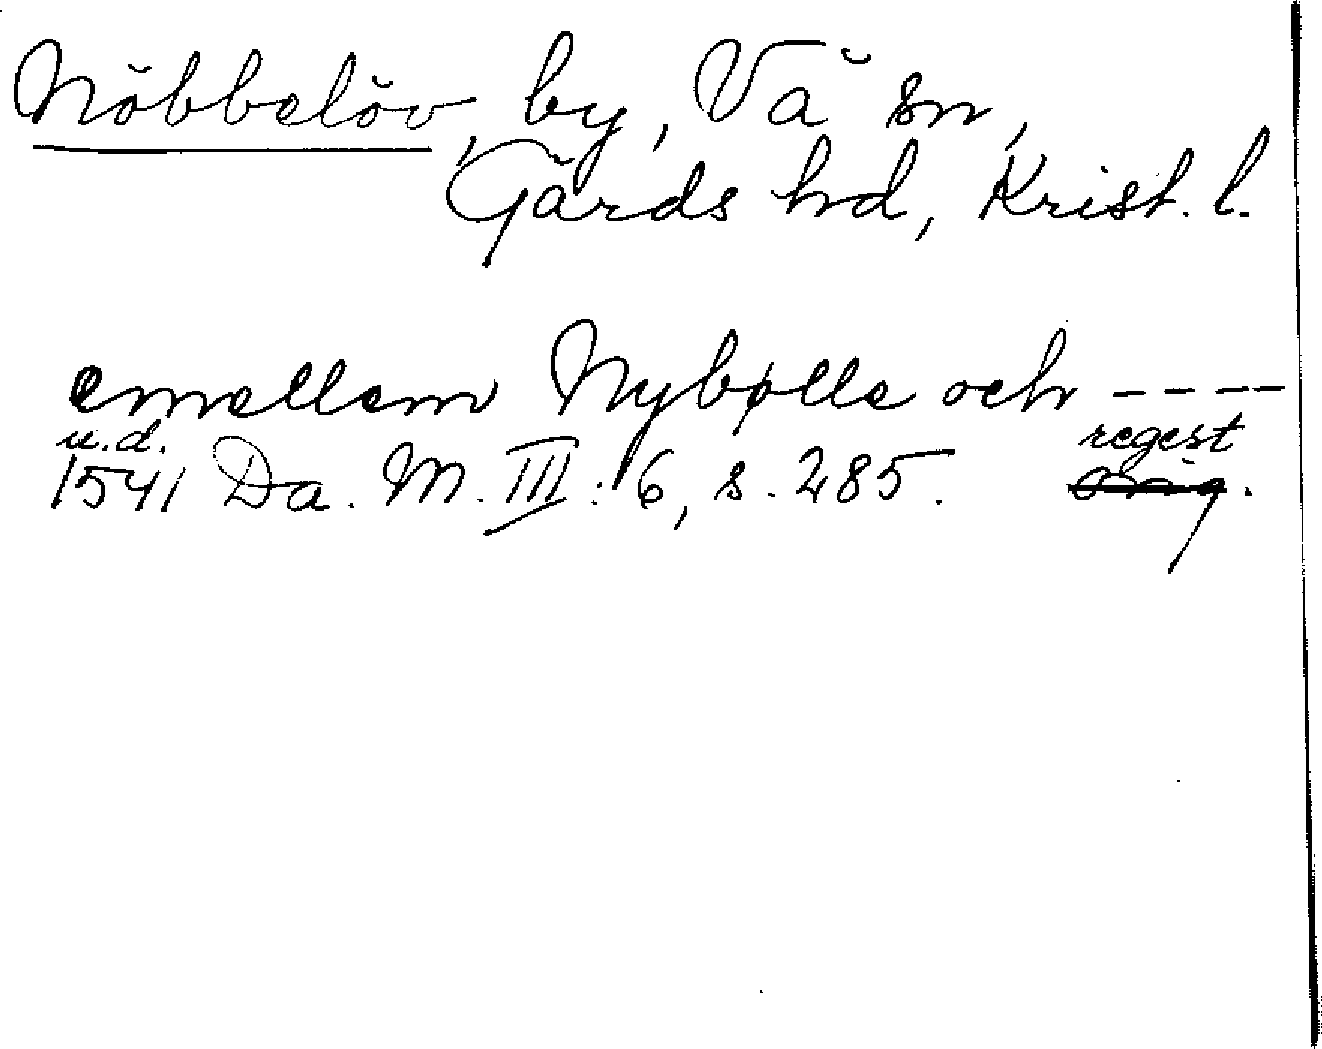 Nöbbelöv, by, Vä sn,
Gärds hd, Krist. l.
emellem Nybølle och ----
u.d. regest
1541 Da. M. III : 6, s. 285. orig.